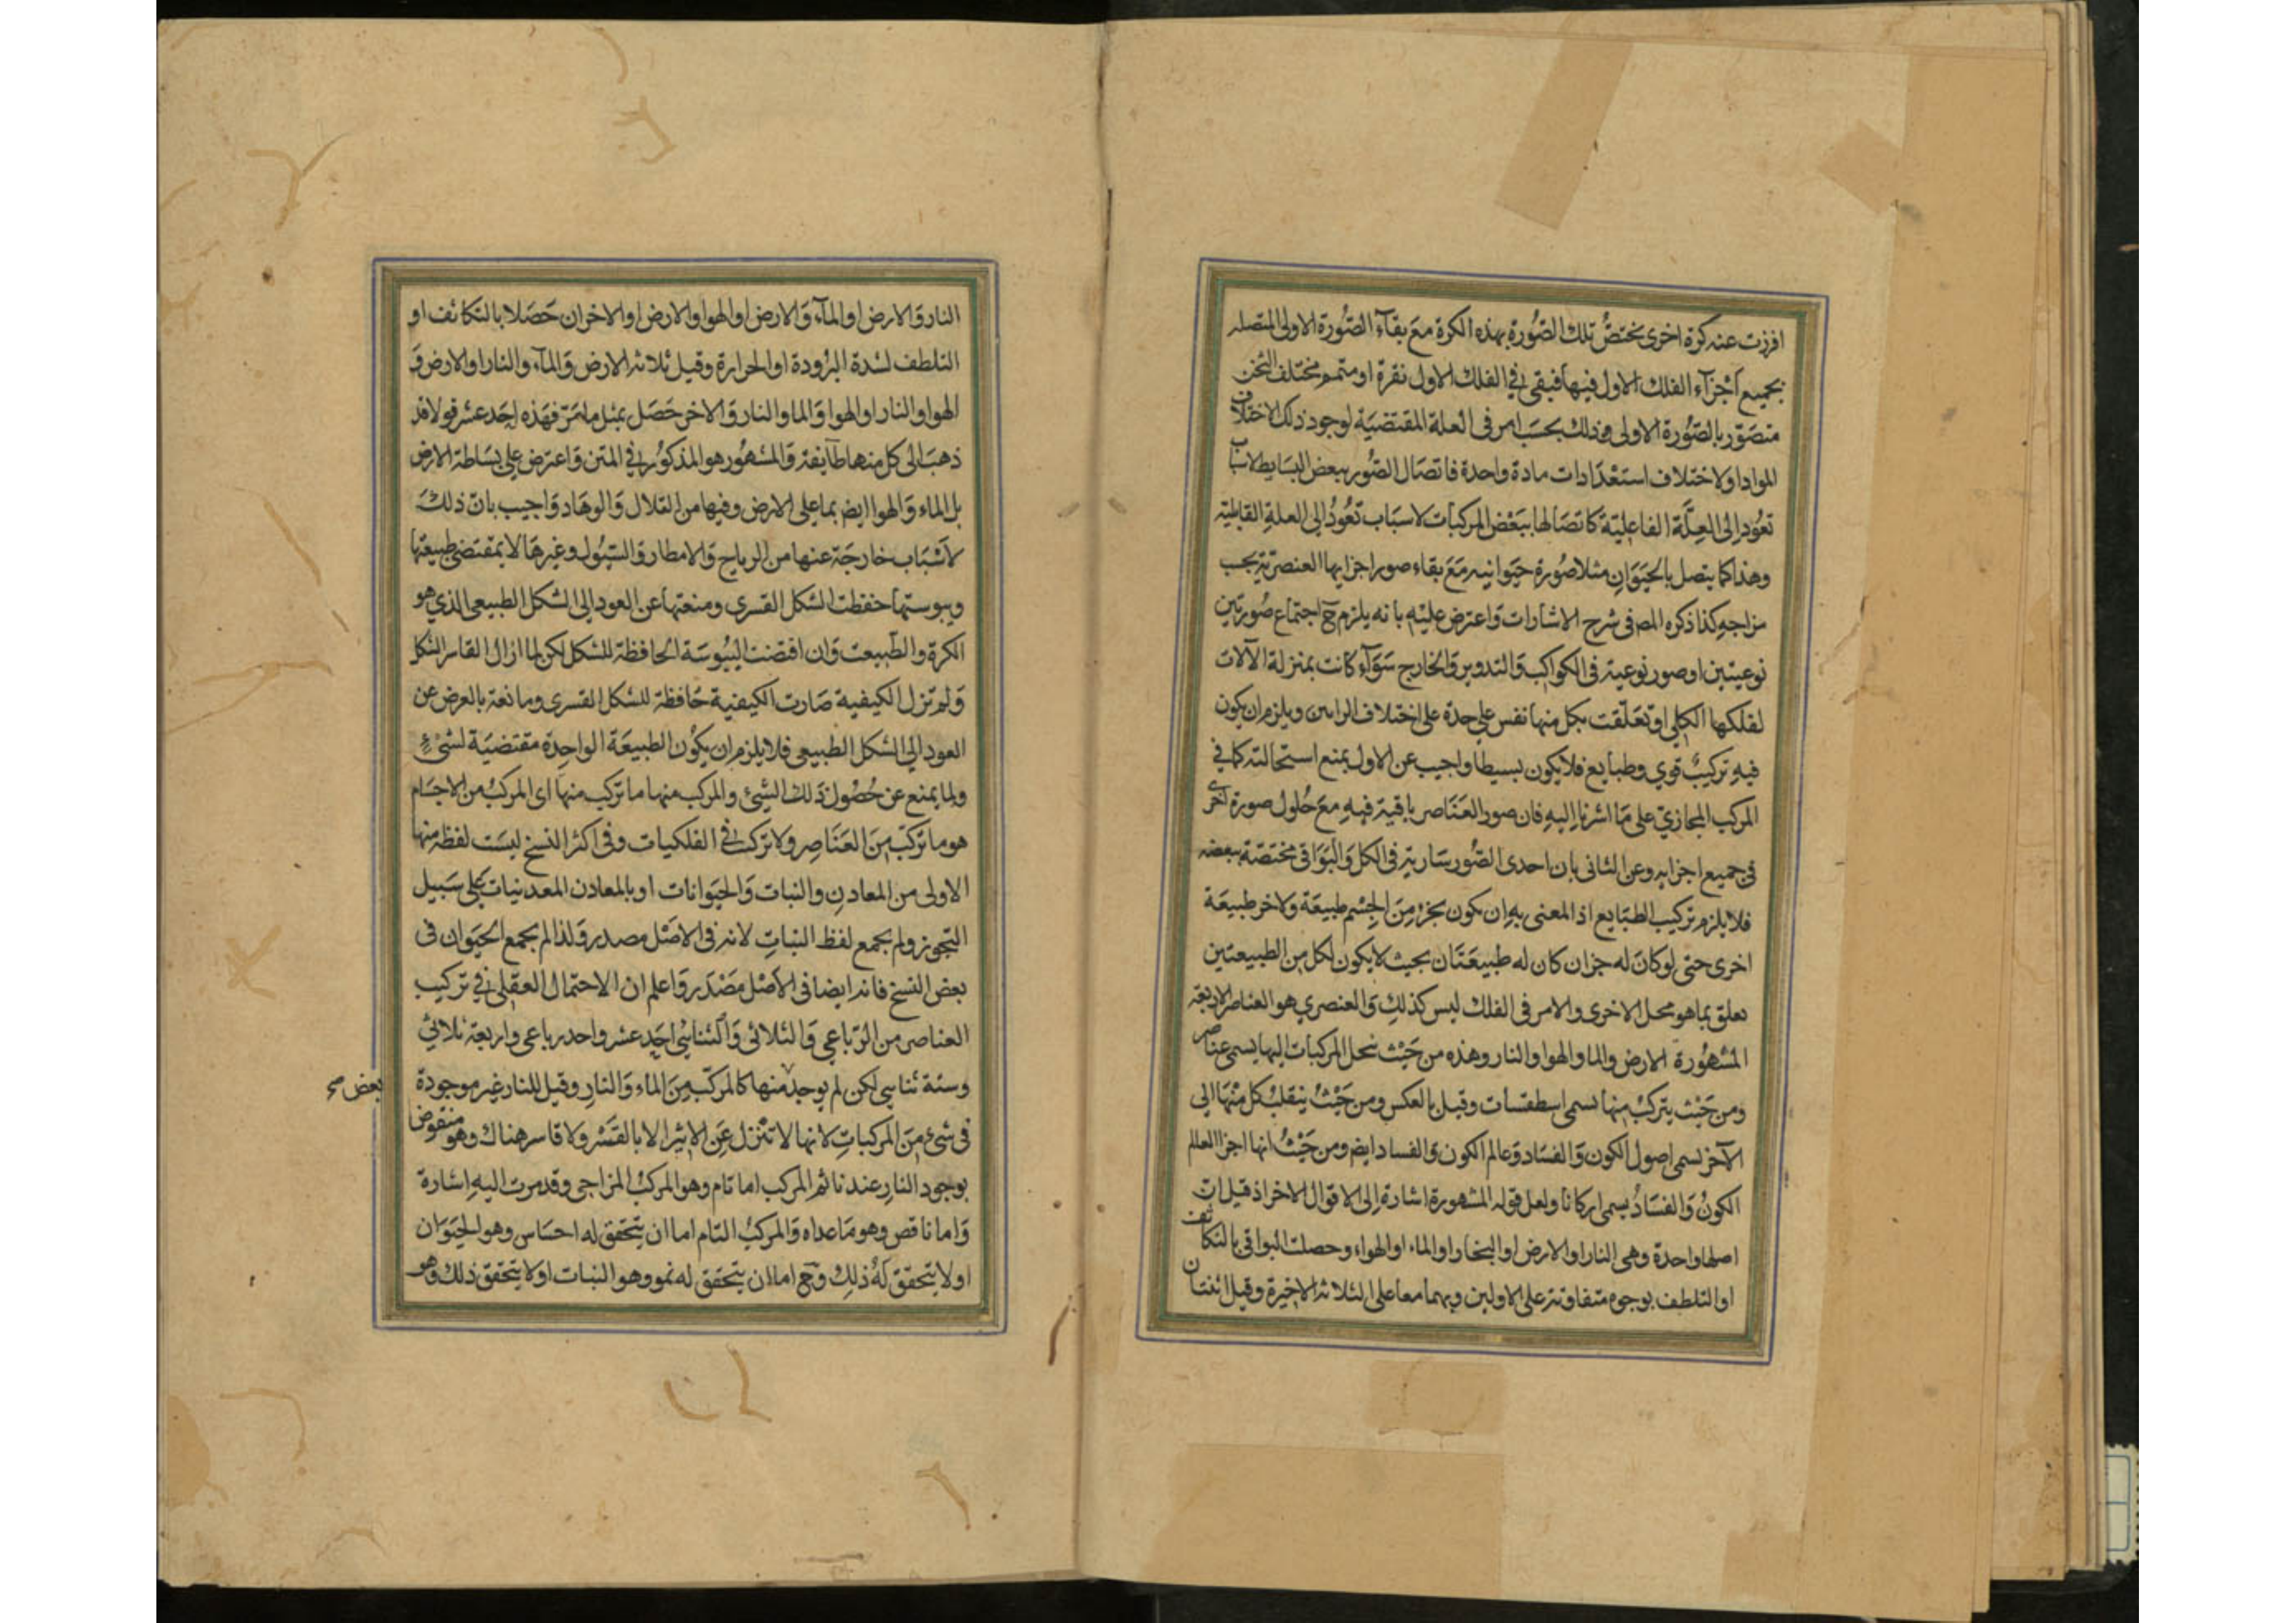 افرزت عنه كرة اخرى نختص تلك الصورة بهذه الكرة مع بقاء الصورة الاولى المتصله
بجميع اجزآء الفلك الاول فيها فيبقى في الفلك الاول نقرة او متمم مختلف الثخن
متصور بالصورة الاولى وذلك بحسب امر فى العلة المقتضية لوجود ذلك الاختلاف
المواد اولاختلاف استعدادات مادة واحدة فاتصال الصور ببعض البسايط لاسباب
تعود الى العلة الفاعلية كاتصالها ببعض المركبات لاسباب تعود الى العلة القابلية
وهذا كما يتصل بالحيوان مثلا صورة حيوانيه مع بقاء صور اجزايها العنصرية بحسب
مزاجه كذا ذكره المص فى شرح الاشارات واعترض عليه بانه يلزم ح اجتماع صورتين
نوعيتين او صور نوعية فى الكواكب والتدوير والخارج سوآء كانت بمنزلة الآلات
لفلكها الكلي او تعلقت بكل منها نفس على حدة على اختلاف الراىين ويلزم ان يكون
فيه تركيب قوي وطبايع فلا يكون بسيطا واجيب عن الاول بمنع استحالته كما في
المركب المجازي على ما اشرنا اليه فان صور العناصر باقية فيه مع حلول صورة اخرى
فى جميع اجزايه وعن الثانى بان احدى الصور سارية فى الكل والبواقى مختصة ببعضه
فلا يلزم تركيب الطبايع اذ المعنى به ان يكون بجزء من الجسم طبيعة ولاخر طبيعة
اخرى حتى لو كان له جزان كان له طبيعتان بحيث لا يكون لكل من الطبيعتين
تعلق بما هو محل الاخرى والامر فى الفلك ليس كذلك والعنصري هو العناصر الاربعة
المشهورة الارض والما والهوا والنار وهذه من حيث تنحل المركبات اليها يسمى عناصر
ومن حيث يتركب منها تسمى اسطقسات وقيل بالعكس ومن حيث ينقلب كل منها الى
الآخر تسمى اصول الكون والفساد وعالم الكون والفساد ايض ومن حيث انها اجزا العالم
الكون والفساد يسمى اركانا ولعل قوله المشهورة اشارة الى الاقوال الاخر اذ قيل ان
اصلها واحدة وهى النار او الارض او البخار او الماء او الهواء وحصلت البواقى بالتكاثف
او التلطف بوجوه متفاوتة على الاولين وبهما معا على الثلاثة الاخيرة وقيل اثنتان
النار والارض او المآء والارض او الهوا والارض او الاخران حصلا بالتكاثف او
التلطف لشدة البرودة او الحرارة وقيل ثلاثة الارض والمآء والنار او الارض و
الهوا والنار او الهوا والما والنار والاخر حصل بمثل ما مر فهذه احد عشر قولا قد
ذهب الى كل منها طآيفة والمشهور هو المذكور في المتن واعترض على بساطة الارض
بل الماء والهوا ايض بما على الارض وفيها من التلال والوهاد واجيب بان ذلك
لاسباب خارجة عنها من الرياح والامطار والسيول وغيرها لا بمقتضى طبيعتها
ويبوستها حفظت الشكل القسرى ومنعتها عن العود الى الشكل الطبيعى الذي هو
الكرة والطبيعت وان اقتضت اليبوسة الحافظة للشكل لكن لما ازال القاسر الشكل
ولم تزل الكيفية صارت الكيفية حافظة للشكل القسرى ومانعة بالعرض عن
العود الى الشكل الطبيعى فلا يلزم ان يكون الطبيعة الواحدة مقتضية لشئ
ولما يمنع عن حصول ذلك الشئ والمركب منها ما تركب منها اى المركب من الاجسام
هو ما تركب من العناصر ولا تركب في الفلكيات وفى اكثر النسخ ليست لفظة منها
الاولى من المعادن والنبات والحيوانات او بالمعادن المعدنيات على سبيل
التجوز ولم يجمع لفظ النبات لانه فى الاصل مصدر ولذا لم يجمع الحيوان فى
بعض النسخ فانه ايضا فى الاصل مصدر واعلم ان الاحتمال العقلى في تركيب
العناصر من الرباعي والثلاثى والثنايى احد عشر واحد رباعى واربعة ثلاثي
وستة ثنايى لكن لم يوجد منها كالمركب من الماء والنار وقيل للنار غير موجودة
بعض صح
فى شىء من المركبات لانها لا تتنزل عن الاثير الا بالقسر ولا قاسر هناك وهو منقوض
بوجود النار عندنا ثم المركب اما تام وهو المركب المزاجى وقد مرت اليه اشارة
واما ناقص وهو ما عداه والمركب التام اما ان يتحقق له احساس وهو الحيوان
او لا يتحقق له ذلك وح اما ان يتحقق له نمو وهو النبات او لا يتحقق ذلك وهو